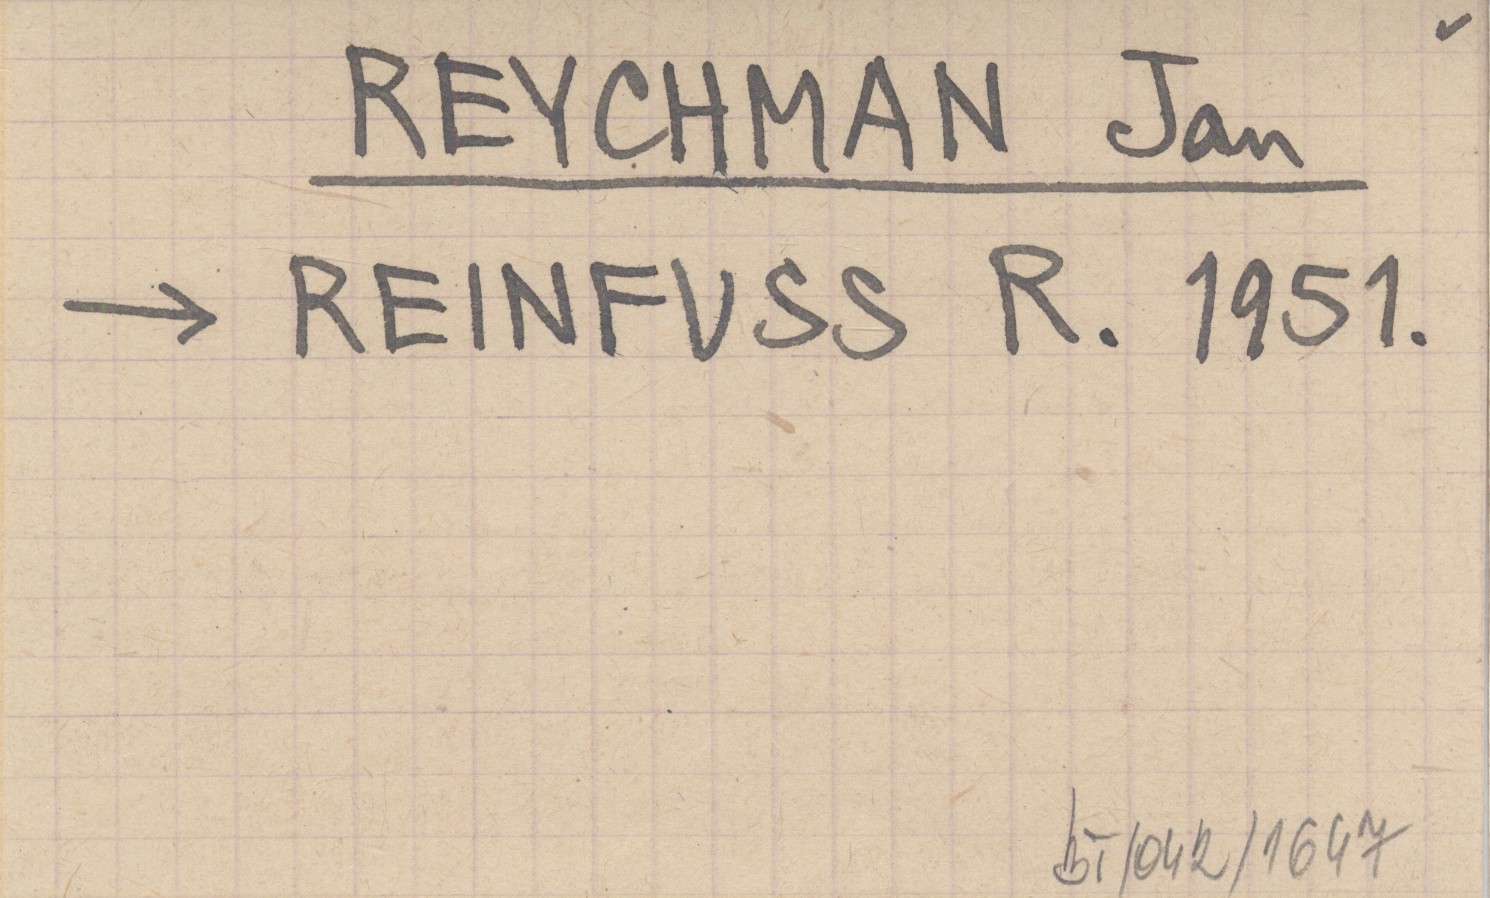 REYCHMAN Jan
→ REINFUSS R. 1951.
bī/042/1647